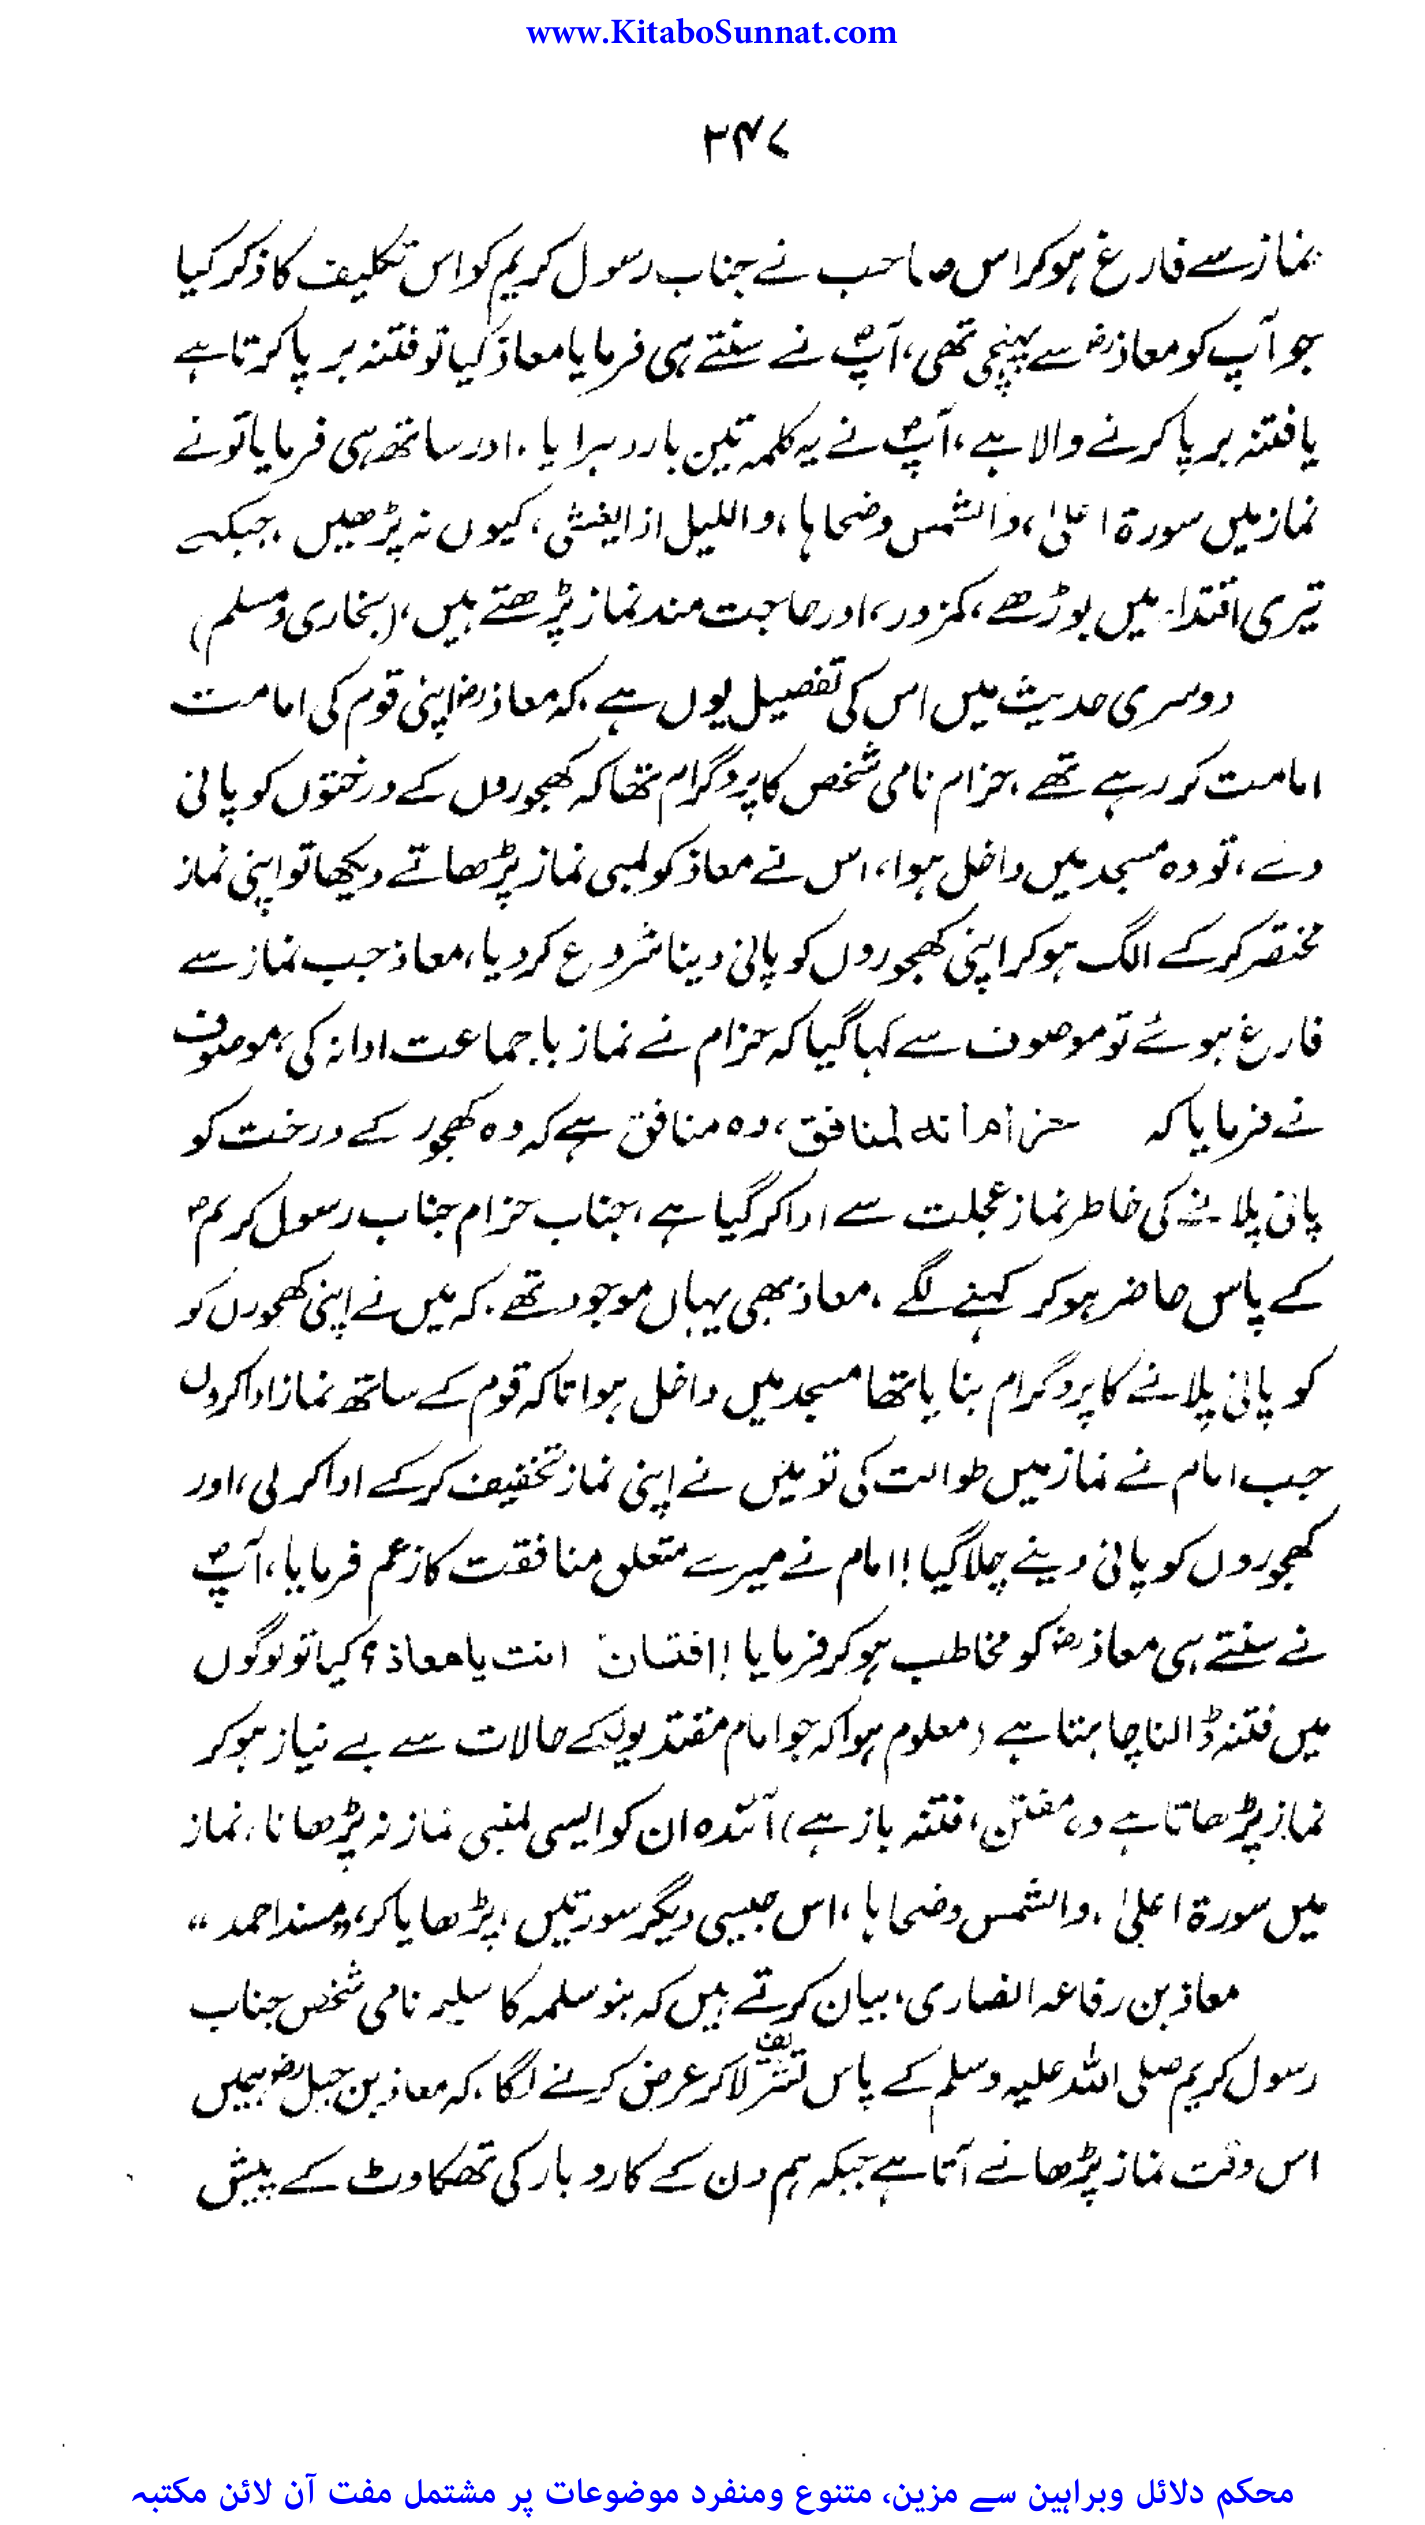 www.KitaboSunnat.com
۲۴۷
نماز سے فارغ ہو کر اس صاحب نے جناب رسول کریم کو اس تکلیف کا ذکر کیا
جو آپ کو معاذؓ سے پہنچی تھی، آپؐ نے سنتے ہی فرمایا معاذ کیا تو فتنہ برپا کرتا ہے
یا فتنہ برپا کرنے والا ہے، آپؐ نے یہ کلمہ تین بار دہرایا، اور ساتھ ہی فرمایا تو نے
نماز میں سورۃ اعلیٰ، والشمس وضحاہا، واللیل اذا یغشی، کیوں نہ پڑھیں، جبکہ
تیری اقتداء میں بوڑھے، کمزور، اور حاجت مند نماز پڑھتے ہیں، (بخاری و مسلم)
دوسری حدیث میں اس کی تفصیل یوں ہے، کہ معاذؓ اپنی قوم کی امامت
امامت کر رہے تھے، حزام نامی شخص کا پروگرام تھا کہ کھجوروں کے درختوں کو پانی
دے، تو وہ مسجد میں داخل ہوا، اس نے معاذ کو لمبی نماز پڑھاتے دیکھا تو اپنی نماز
مختصر کر کے الگ ہو کر اپنی کھجوروں کو پانی دینا شروع کر دیا، معاذ جب نماز سے
فارغ ہوئے تو موصوف سے کہا گیا کہ حزام نے نماز با جماعت ادا نہ کی، موصوف
نے فرمایا کہ حزام انه لمنافق، وہ منافق ہے کہ وہ کھجور کے درخت کو
پانی پلانے کی خاطر نماز عجلت سے ادا کر گیا ہے، جناب حزام جناب رسول کریمؐ
کے پاس حاضر ہو کر کہنے لگے، معاذ بھی یہاں موجود تھے، کہ میں نے اپنی کھجوروں کو
کو پانی پلانے کا پروگرام بنایا تھا مسجد میں داخل ہوا تاکہ قوم کے ساتھ نماز ادا کروں
جب امام نے نماز میں طوالت کی تو میں نے اپنی نماز تخفیف کر کے ادا کر لی، اور
کھجوروں کو پانی دینے چلا گیا! امام نے میرے متعلق منافقت کا زعم فرمایا، آپؐ
نے سنتے ہی معاذؓ کو مخاطب ہو کر فرمایا! افتان انت یا معاذ؟ کیا تو لوگوں
میں فتنہ ڈالنا چاہتا ہے (معلوم ہوا کہ جو امام مقتدیوں کے حالات سے بے نیاز ہو کر
نماز پڑھاتا ہے وہ مفتن، فتنہ باز ہے) آئندہ ان کو ایسی لمبی نماز نہ پڑھانا، نماز
میں سورۃ اعلیٰ، والشمس وضحاہا، اس جیسی دیگر سورتیں، پڑھایا کر، „مسند احمد“
معاذ بن رفاعہ انصاری، بیان کرتے ہیں کہ بنو سلمہ کا سلیم نامی شخص جناب
رسول کریم صلی اللہ علیہ وسلم کے پاس تشریف لا کر عرض کرنے لگا، کہ معاذ بن جبلؓ ہمیں
اس وقت نماز پڑھانے آتا ہے جبکہ ہم دن کے کاروبار کی تھکاوٹ کے پیش
محکم دلائل وبراہین سے مزین، متنوع ومنفرد موضوعات پر مشتمل مفت آن لائن مکتبہ